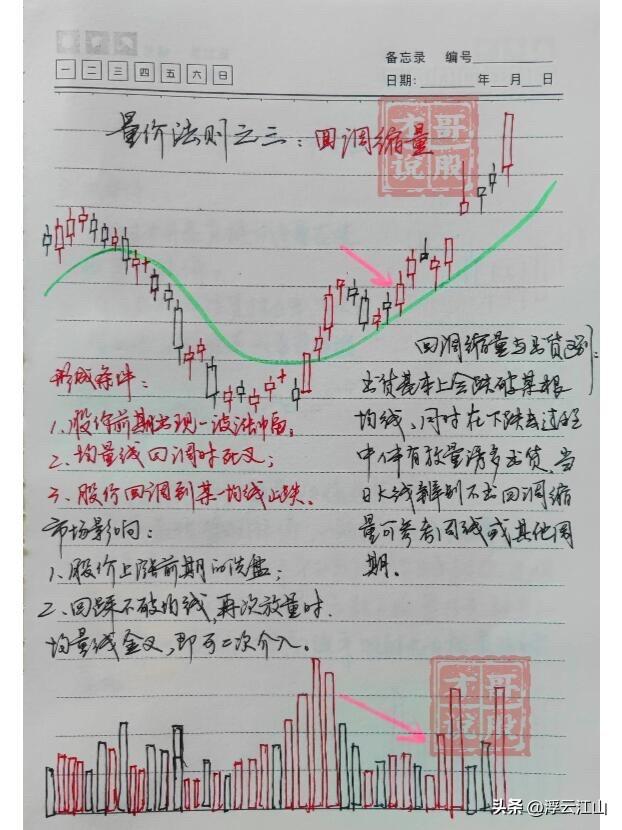 备忘录 编号
一 二 三 四 五 六 日
日期: 年 月 日
量价法则之三：回调缩量
才哥
说股
回调缩量与出货区别：
出货基本上会跌破某根
均线、同时在下跌过程
中伴有放量诱多出货、当
日K线辨别不出回调缩
量可参考周线或其他周
期。
形成条件：
1、股价前期出现一波涨幅；
2、均量线回调时死叉；
3、股价回调到某一均线止跌。
市场影响：
1、股价上涨前期的洗盘；
2、回踩不破均线，再次放量时.
均量线金叉，即可二次介入。
才哥
说股
头条 @浮云江山